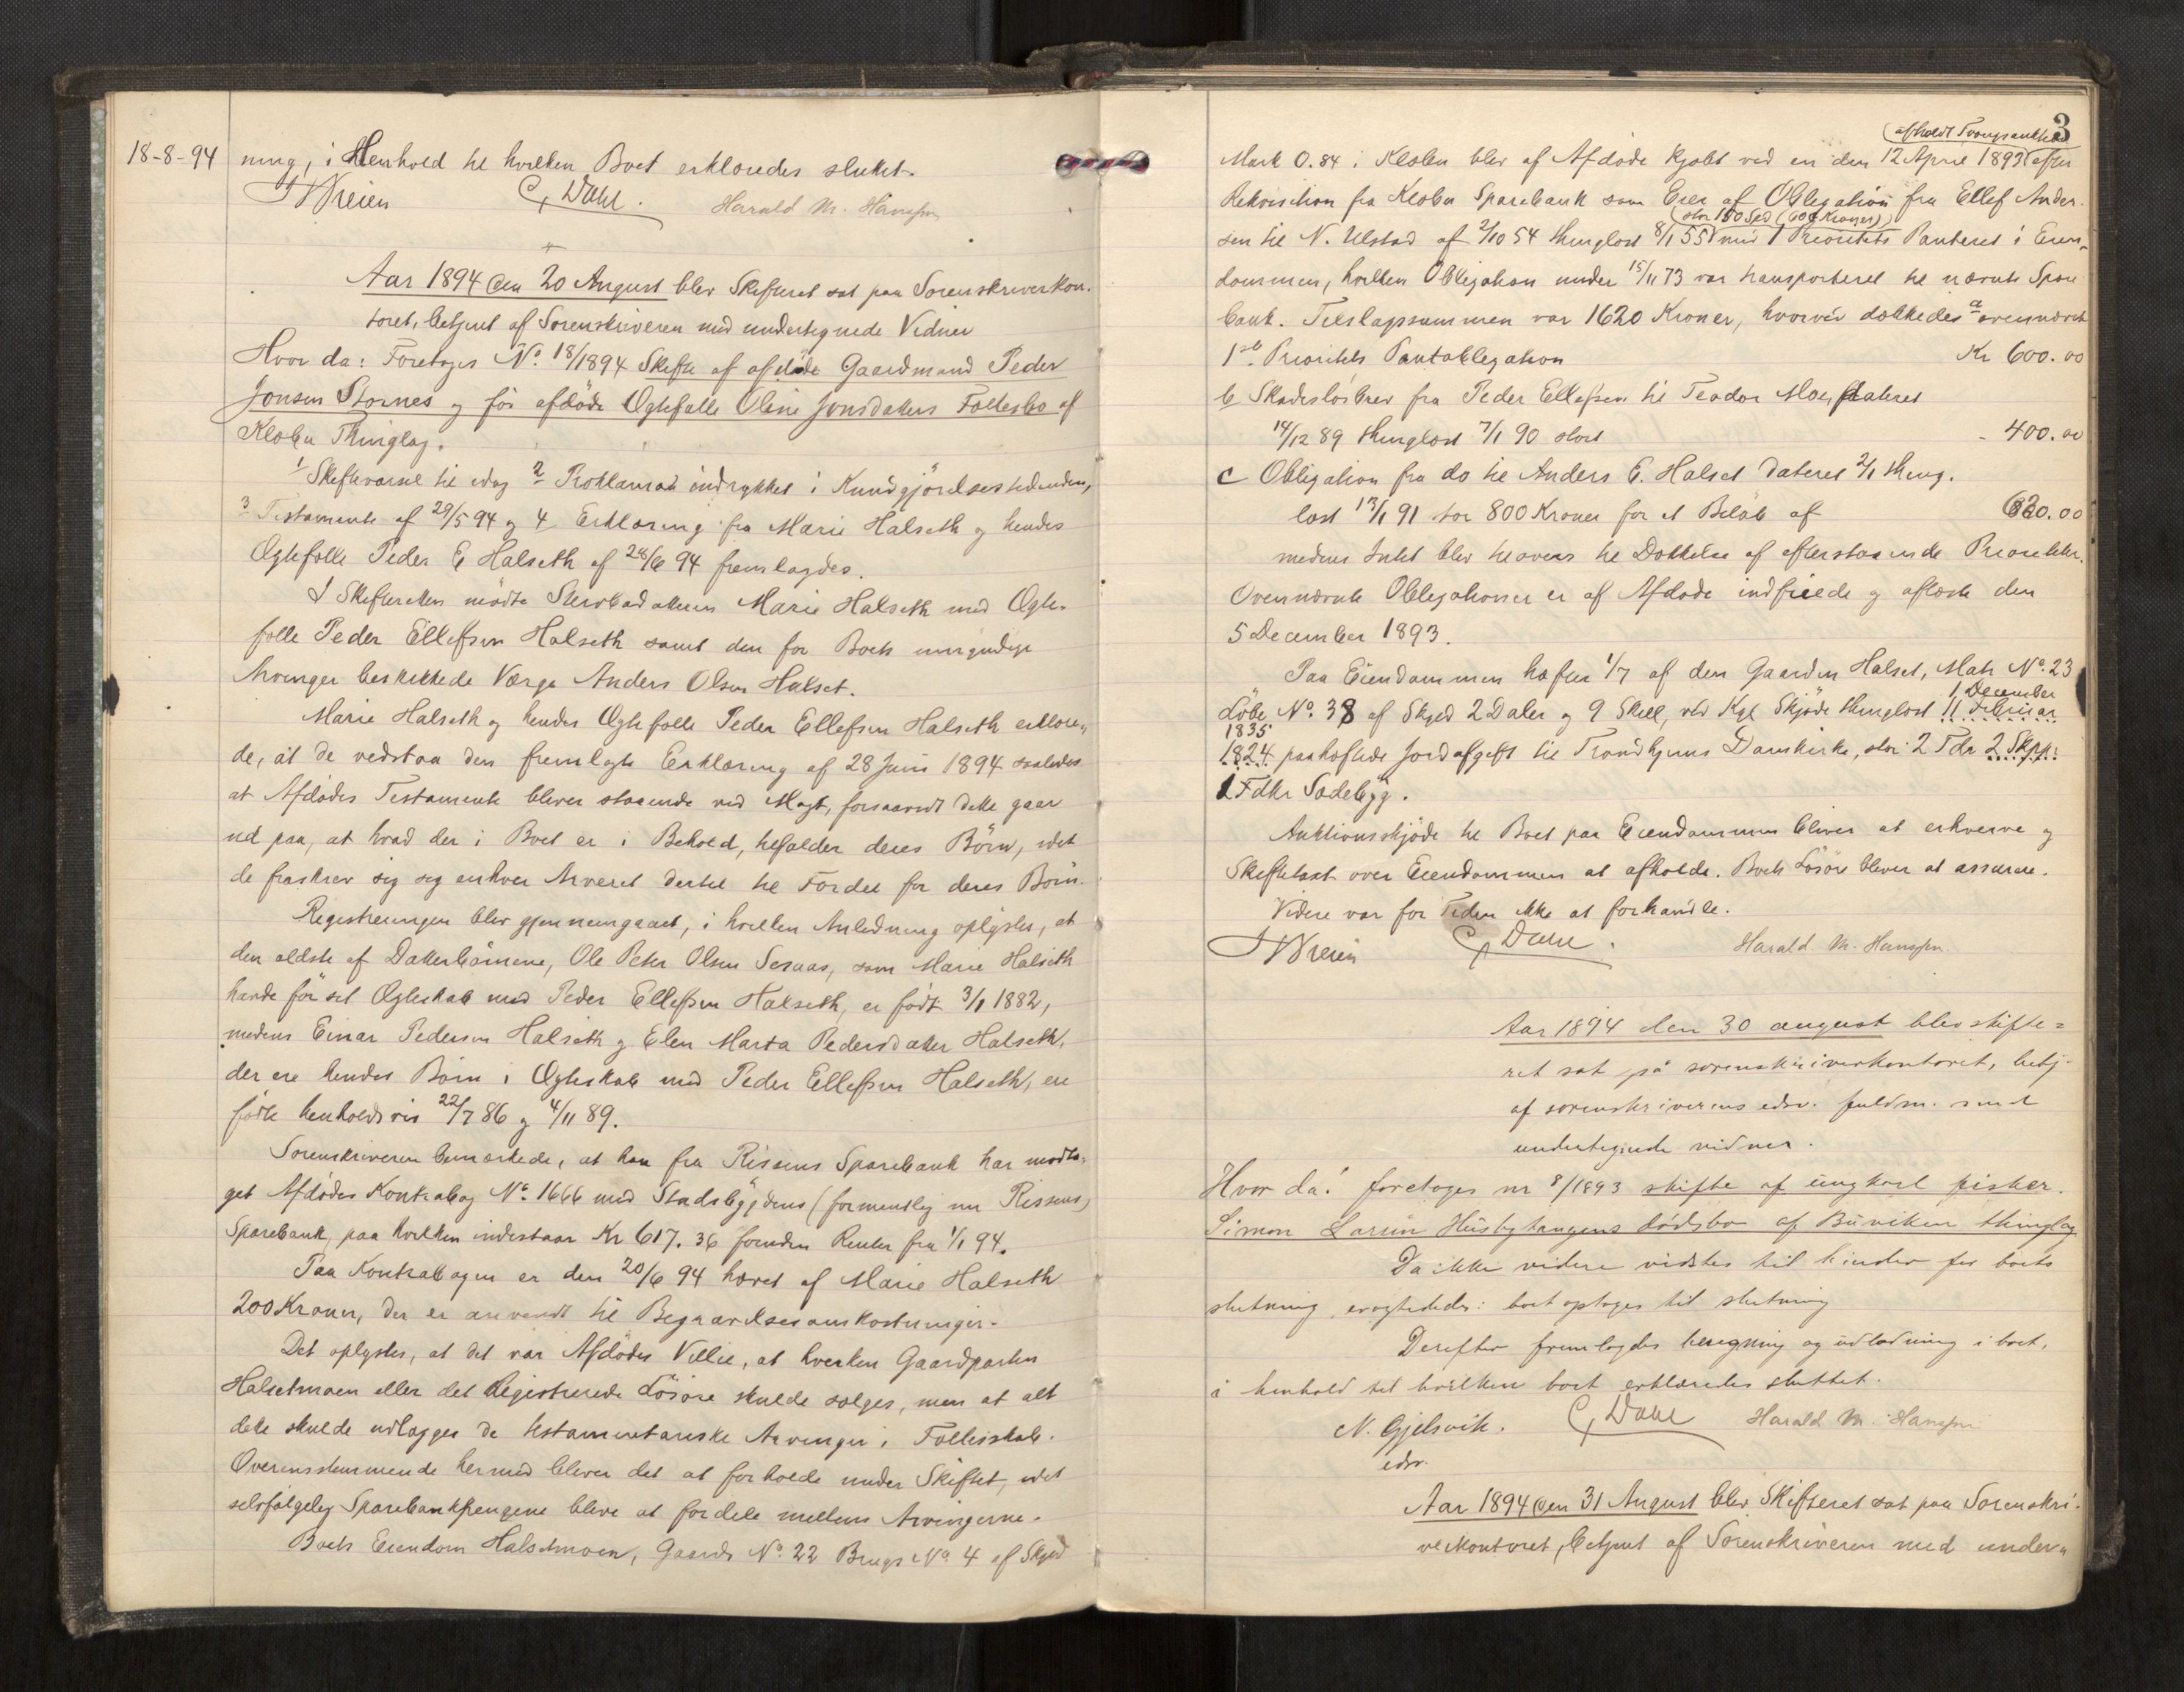 18-8-94
ning, i Henhold til hvilken Boet erklæredes sluttet.
C, Dahl. Harald M. Hansen
Aar 1894 den 20 August blev Skifteret sat paa Sorenskriverkon-
toret, betjent af Sorenskriveren med undertegnede Vidner
Hvor da: Foretages No. 18/1894 Skifte af afdøde Gaardmand Peder
Jonsen Stornes og før afdøde Ægtefælle Oline Jonsdatters Fællesbo af
Klæbu Thinglag.
1 Skiftevarsel til idag 2 Proklamaet indrykket i Kundgjörelsestidenden,
3 Testamente af 29/5 94 og 4 Erklæring fra Marie Halseth og hendes
Ægtefælle Peder E Halseth af 28/6 94 fremlagdes.
I Skifteretten mödte Marie Halseth med Ægte-
fælle Peder Ellefsen Halseth samt den for Boets umyndige
Arvinger beskikkede Værge Anders Olsen Halset.
Marie Halseth og hendes Ægtefælle Peder Ellefsen Halseth erklære-
de, at de vedstaa den fremlagte Erklæring af 28 Juni 1894 saaledes
at Afdødes Testamente bliver staaende ved Magt, forsaavidt dette gaar
ud paa, at hvad der i Boet er i Behold, tilfalder deres Börn, idet
de fraskrev sig sig enhver Arveret dertil til Fordel for deres Börn.
Registreringen blev gjennemgaaet, i hvilken Anledning oplystes, at
den ældste af Datterbörnene, Ole Peter Olsen Seraas, som Marie Halseth
havde för sit Ægteskab med Peder Ellefsen Halseth, er födt 3/1 1882,
medens Einar Pedersen Halseth og Elen Marta Pedersdatter Halseth,
der ere hendes Börn i Ægteskab med Peder Ellefsen Halseth, ere
födte henholdsvis 22/7 86 og 4/11 89.
Sorenskriveren bemærkede, at han fra Rissens Sparebank har modta-
get Afdödes Kontrabog No. 1666 med Stadsbygdens (formentlig nu Rissens)
Sparebank, paa hvilken indestaar Kr 617.36 foruden Renter fra 1/1 94.
Paa Kontrabogen er den 20/6 94 hævet af Marie Halseth
200 Kroner, der er anvendt til Begravelsesomkostninger.
Det oplystes, at det var Afdödes Villie, at hverken Gaardparten
Halsetmoen eller det Registrerede Lösöre skulde sælges, men at alt
dette skulde udlægges de testamentariske Arvinger i Fællesskab.
Overensstemmende hermed bliver det at forholde under Skiftet, idet
selvfølgelig Sparebankpengene blive at fordele mellem Arvingerne.
Boets Eiendom Halsetmoen, Gaards No. 22 Brugs No. 4 af Skyld
3
(afholdt Tvangsauktion
Mark 0.84 i Klæbu blev af Afdøde kjøbt ved en den 12 April 1893 efter
Rekvisition fra Klæbu Sparebank som Eier af Obligation fra Ellef Ander-
(stor 150 Spd (600 Kroner))
sen til N. Ulstad af 2/10 54 thinglæst 8/1 55 med 1 Prioritets Panteret i Eien-
dommen, hvilken Obligation under 15/11 73 var transporteret til nævnte Spare
bank. Tilslagssummen var 1620 Kroner, hvorved dækkedes a ovennævnte
1ste Prioritets Pantobligation Kr 600.00
b Skadeslösbrev fra Peder Ellefsen til Teodor Moe, dateret
14/12 89 thinglæst 7/1 90 stort - 400.00
c Obligation fra do til Anders E. Halset dateret 2/1 thing-
læst 13/1 91 stor 800 Kroner for et Belöb af 620.00
medens Intet blev tilovers til Dækkelse af efterstaaende Prioriteter.
Ovennævnte Obligationer er af Afdøde indfriede og aflæste den
5 December 1893.
Paa Eiendommen hæfter 1/7 af den Gaarden Halset, Matr No. 23
1 December
Löbe No. 38 af Skyld 2 Daler og 9 Skill, ved Kgl Skjöde thinglæst 11 Februar
1835
1824 paahæftede Jordafgift til Trondhjems Domkirke, stor: 2 Tdr 2 Skpp:
1 Fdkr Sædebyg.
Auktionsskjöde til Boet paa Eiendommen bliver at erhverve og
Skiftetaxt over Eiendommen at afholde. Boets Lösöre bliver at assurere.
Videre var for Tiden ikke at forhandle.
C, Dahl. Harald M. Hansen.
Aar 1894 den 30 august blev skifte=
ret sat på sorenskriverkontoret, betj.
af sorenskriverens edsv. fuldm. med
undertegnede vidner.
Hvor da: foretoges nr 8/1893 skifte af ungkarl fisker
Simon Larsen Husbytangens dödsbo af Buviken thinglag
Da ikke videre vidstes til hinder for boets
slutning, eragtedes: boet optages til slutning
Derefter fremlagdes beregning og udlodning i boet,
i henhold til hvilken boet erklæredes sluttet.
N. Gjelsvik. C, Dahl Harald M. Hansen
edsv.
Aar 1894 den 31 August blev Skifteret sat paa Sorenskri-
verkontoret, betjent af Sorenskriveren med under-